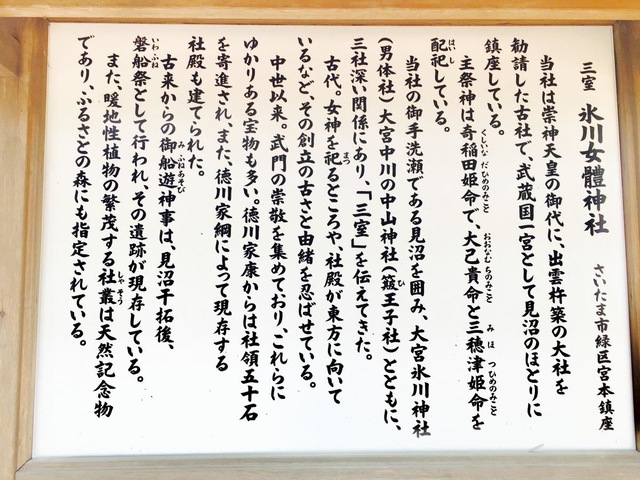 三室　氷川女體神社
さいたま市緑区宮本鎮座
当社は崇神天皇の御代に、出雲杵築の大社を
勧請した古社で、武蔵国一宮として見沼のほとりに
鎮座している。
主祭神は奇稲田姫命で、大己貴命と三穂津姫命を
くしいな だ ひめのみこと　おおなむ ちのみこと　み ほ つ ひめのみこと
配祀している。
はい し
当社の御手洗瀬である見沼を囲み、大宮氷川神社
(男体社)大宮中川の中山神社(簸王子社)とともに、
ひ
三社深い関係にあり、「三室」を伝えてきた。
古代。女神を祀るところや、社殿が東方に向いて
まつ
いるなど、その創立の古さと由緒を忍ばせている。
中世以来。武門の崇敬を集めており、これらに
ゆかりある宝物も多い。徳川家康からは社領五十石
を寄進され、また、徳川家綱によって現存する
社殿も建てられた。
古来からの御船遊神事は、見沼干拓後、
み ふねあそび
磐船祭として行われ、その遺跡が現存している。
いわ ふね
また、暖地性植物の繁茂する社叢は天然記念物
しゃ そう
であり、ふるさとの森にも指定されている。